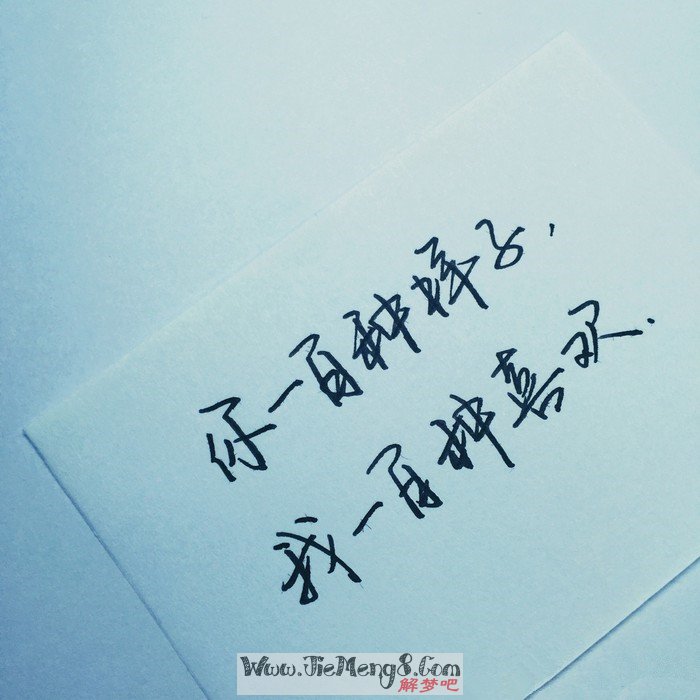 你一百种样子,
我一百种喜欢.
Www.JieMeng8.Com
解梦吧